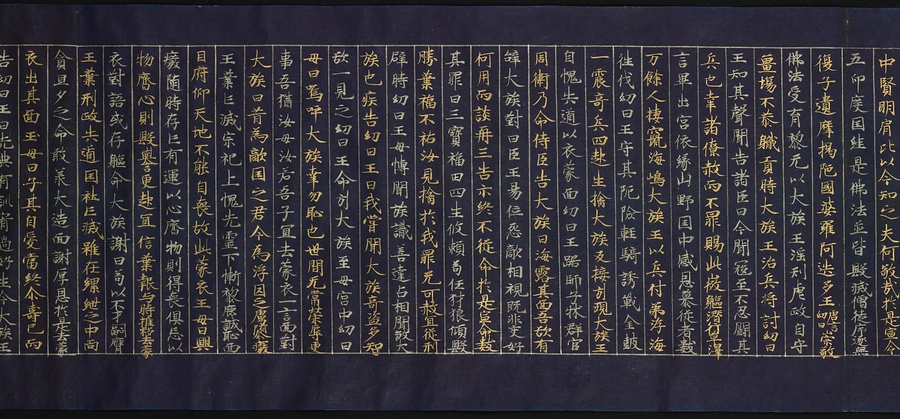 中賢明肩比以今知之夫何敬哉於是宣令
五印度国継是佛法並皆毀滅僧徒斥逐無
復孑遺摩揭陁國婆羅阿迭多王唐言幼日崇敬
佛法愛育黎元以大族王淫刑虐政自守
畺埸不恭職貢時大族王治兵將討幼日
王知其聲聞告諸臣曰今聞寇至不忍鬪其
兵也幸諸僚庶赦而不罪賜此微軀潛行草澤
言畢出宮依緣山野国中感恩慕從者數
万餘人棲竄海嶋大族王以兵付弟浮海
往伐幼日王守其阨險輕騎誘戰金鼓
一震奇兵四起生擒大族反接引現大族王
自愧失道以衣蒙面幼日王踞師子牀群官
周衛乃命侍臣告大族曰汝露其面吾欲有
辞大族對曰臣主易位怨敵相視既非交好
何用面談再三告示終不從命於是宣令數
其罪曰三寶福田四生攸賴苟任豺狼傾毀
勝業福不祐汝見擒於我罪无可赦宜從刑
辟時幼日王母博聞強識善達占相聞殺大
族也疾告幼日王曰我嘗聞大族奇姿多智
欲一見之幼日王命引大族至母宮中幼日
母曰嗚呼大族幸勿恥也世間无常榮辱更
事吾猶汝母汝若吾子宜去蒙衣一言面對
大族曰昔為敵国之君今為俘囚之虜隳廢
王業亡滅宗祀上愧先靈下慚黎庶誠恥面
目俯仰天地不能自喪故此蒙衣王母曰興
癈随時存亡有運以心齊物則得喪俱忘以
物齊心則毀譽更起宜信業報与時推移去蒙
衣對語或存軀命大族謝曰苟以不才嗣膺
王業刑政失道国祚亡滅雖在縲紲之中尚
貪旦夕之命敢承大造面謝厚恩於是去蒙
衣出其面王母曰子其自愛當終尒壽已而
告幼日王曰先典有訓宥過好生今大族王